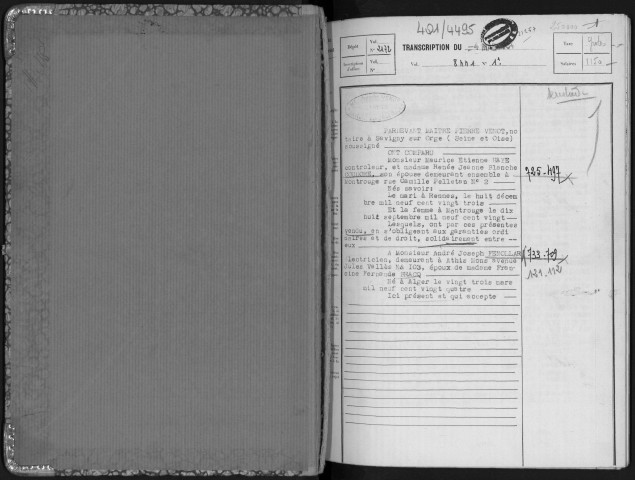 401/4495
Dépôt
Vol.
N° 2476
TRANSCRIPTION DU
Vol.
N°
Vol. 8441 n° 1
Taxe
Salaires
PARDEVANT MAITRE PIERRE VENOT, no
taire à Savigny sur Orge ( Seine et Oise)
soussigné
ONT COMPARU
Monsieur Maurice Etienne HAYE
controleur, et madame Renée Jeanne Blanche
son épouse demeurant ensemble à
Montrouge rue Camille Pelletan N° 2
725-497
Nés savoir:
Le mari à Rennes, le huit décem
bre mil neuf cent vingt trois
Et la femme à Montrouge le dix
huit septembre mil neuf cent vingt
Lesquels, ont par ces présentes
vendu, en s'obligeant aux garanties ordi
naires et de droit, solidairement entre --
eux
A Monsieur André Joseph
733-709
électricien, demeurant à Athis Mons avenue
Jules Vallès N° 103, époux de madame Fran
121-112
cine Fernande
Né à Alger le vingt trois mars
mil neuf cent vingt quatre
Ici présent et qui accepte